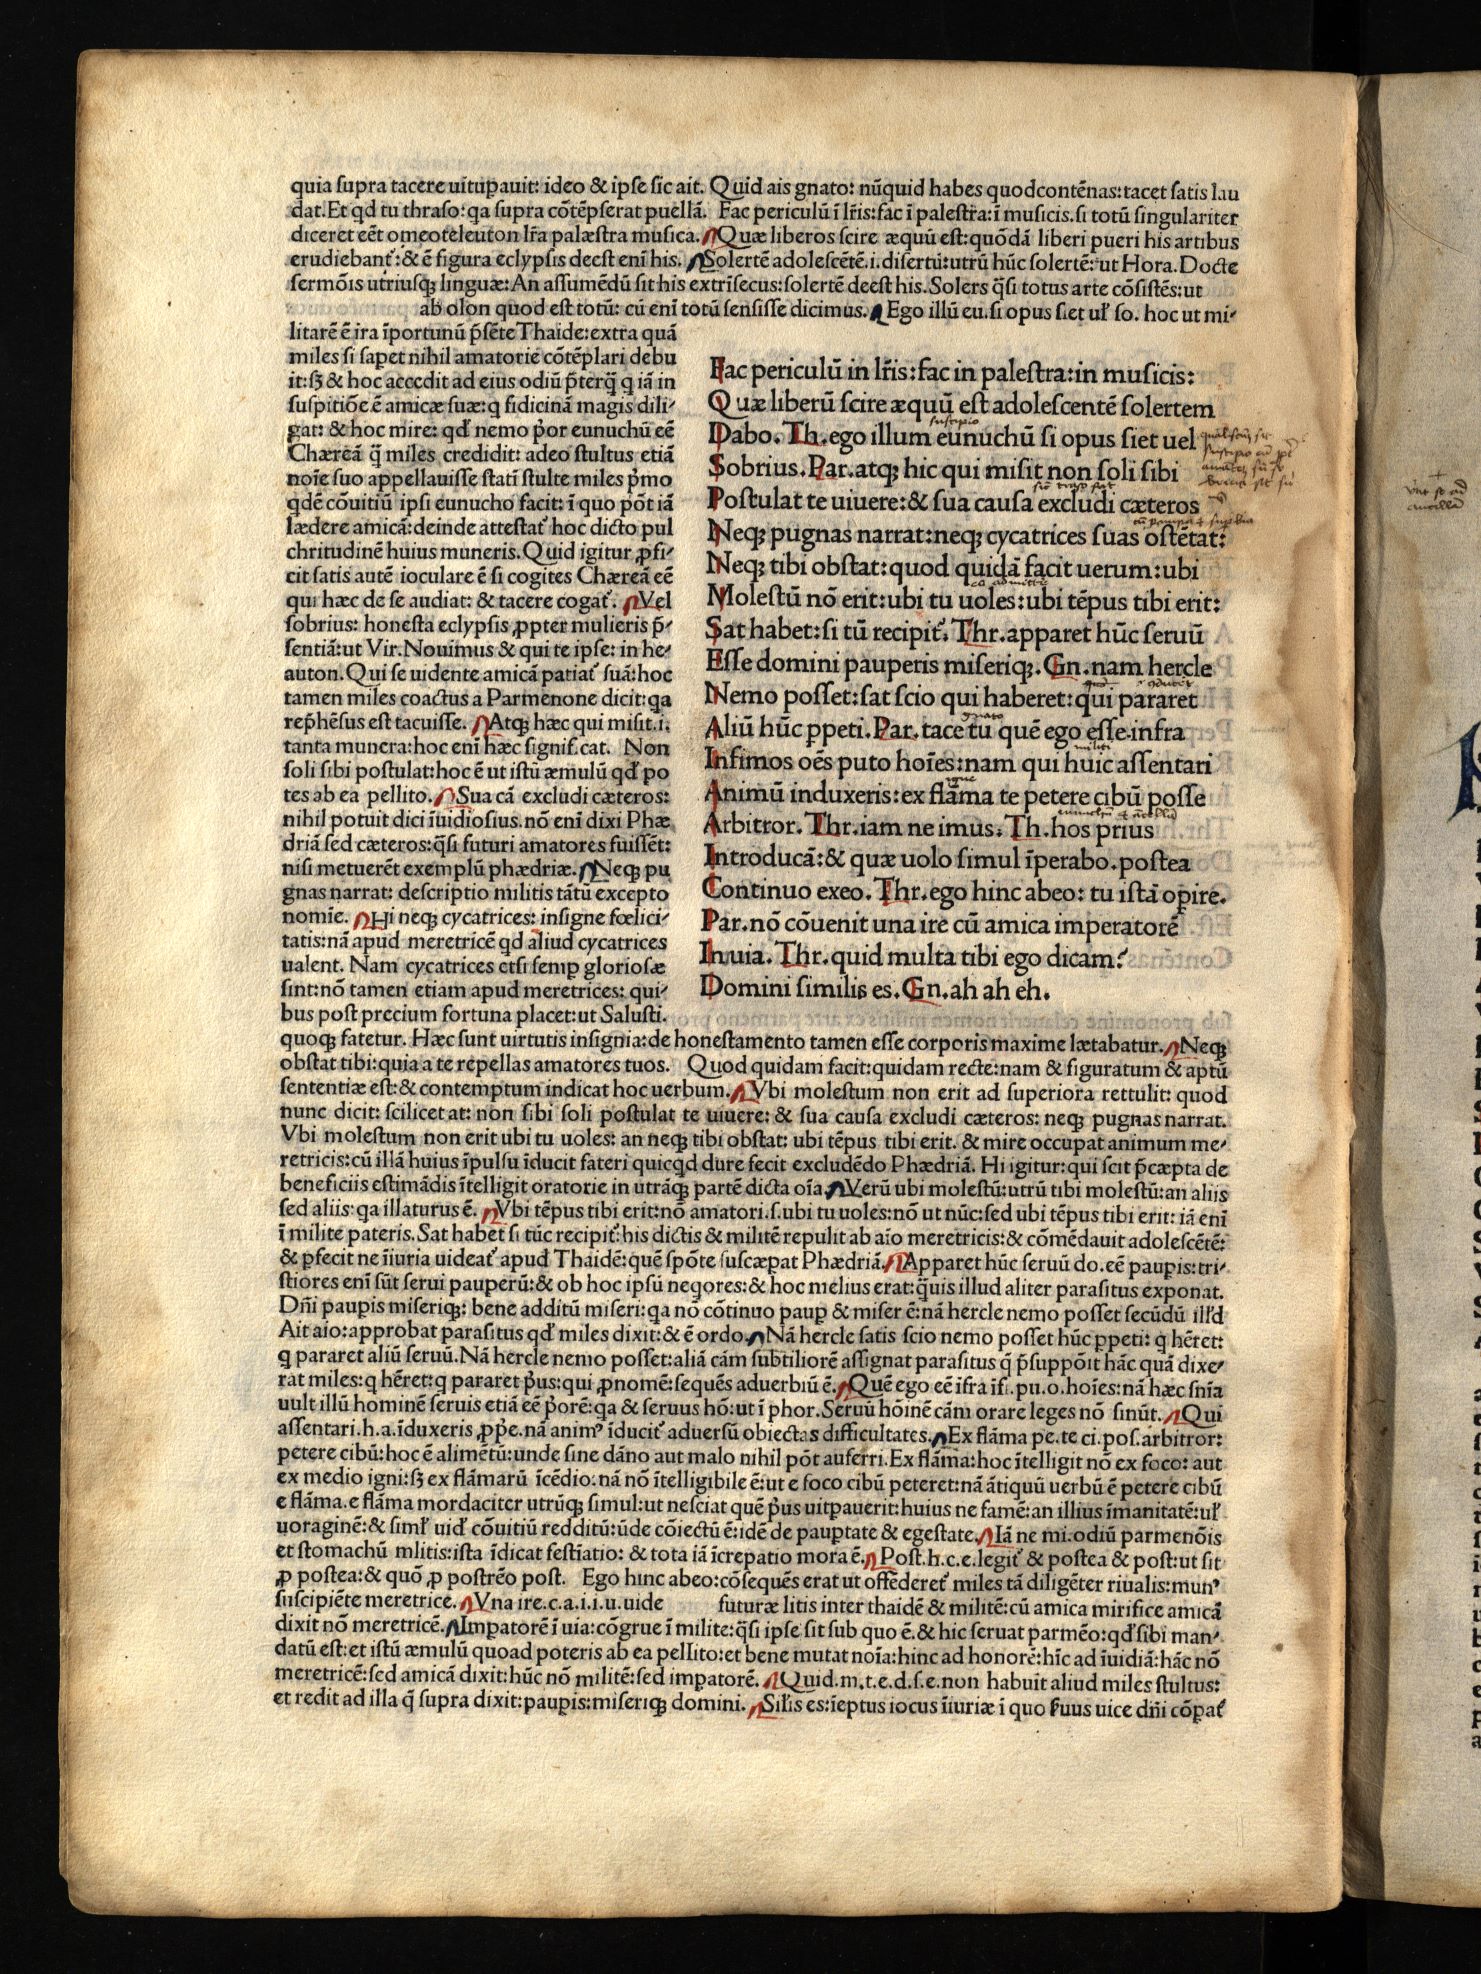 quia ſupra tacere uituꝑauit: ideo & ipſe ſic ait. Quid ais gnato: nūquid habes quodcontēnas:tacet ſatis lau
dat.Et qd tu thraſo:qa ſupra cōtēpſerat puellā. Fac periculū ī lr̄is:fac ī paleſtra:ī muſicis.ſi totū ſingulariter
diceret eēt omeoteleuton lr̄a palæſtra muſica. Quæ liberos ſcire æquū eſt:quōdā liberi pueri his artibus
erudiebant᷑:& ē figura eclypſis deeſt enī his. Solertē adoleſcētē.i.diſertū:utrū hūc ſolertē: ut Hora.Docte
ſermōis utriuſqꝫ linguæ:An aſſumēdū ſit his extrīſecus:ſolertē deeſt his.Solers q̄ſi totus arte cōſiſtēs:ut
ab olon quod eſt totū: cū enī totū ſenſiſſe dicimus. Ego illū eu.ſi opus ſiet uł ſo. hoc ut mi-
litarē ē ira īportunū p̄ſēte Thaide:extra quā
miles ſi ſapet nihil amatorie cōtēplari debu
it:ſꝫ & hoc accedit ad eius odiū p̄terq̄ q iā in
ſuſpitiōe ē amicæ ſuæ:q fidicinā magis dili-
gat: & hoc mire: qđ nemo p̄or eunuchū eē
Chæreā q̄ miles credidit: adeo ſtultus etiā
noīe ſuo appellauiſſe ſtatī ſtulte miles p̄mo
qdē cōuitiū ipſi eunucho facit: ī quo pōt iā
lædere amicā:deinde atteſtat᷑ hoc dicto pul
chritudinē huius muneris.Quid igitur ꝓfi-
cit ſatis autē ioculare ē ſi cogites Chæreā eē
qui hæc de ſe audiat: & tacere cogat᷑. Vel
ſobrius: honeſta eclypſis ꝓpter mulieris p̄-
ſentiā:ut Vir.Nouimus & qui te ipſe: in he-
auton.Qui ſe uidente amicā patiat᷑ ſuā:hoc
tamen miles coactus a Parmenone dicit:qa
rep̄hēſus eſt tacuiſſe. Atqꝫ hæc qui miſit.i.
tanta munera:hoc enī hæc ſignificat. Non
ſoli ſibi poſtulat:hoc ē ut iſtū æmulū qđ po
tes ab ea pellito. Sua cā excludi cæteros:
nihil potuit dici īuidioſius.nō enī dixi Phæ
driā ſed cæteros:q̄ſi futuri amatores fuiſſēt:
niſi metuerēt exemplū phædriæ. Neqꝫ pu
gnas narrat: deſcriptio militis tātū excepto
nomīe. Hi neqꝫ cycatrices: inſigne fœlici-
tatis:nā apud meretricē qd aliud cycatrices
ualent. Nam cycatrices etſi ſemꝑ glorioſæ
ſint:nō tamen etiam apud meretrices: qui-
bus poſt precium fortuna placet:ut Saluſti.
Fac periculū in lr̄is:fac in paleſtra:in muſicis:
Quæ liberū ſcire æquū eſt adoleſcentē ſolertem
Dabo. Th.ego illum eunuchū ſi opus ſiet uel
Sobrius.Par.atqꝫ hic qui miſit non ſoli ſibi
Poſtulat te uiuere:& ſua cauſa excludi cæteros
Neqꝫ pugnas narrat:neqꝫ cycatrices ſuas oſtētat:
Neqꝫ tibi obſtat:quod quidā facit uerum:ubi
Moleſtū nō erit:ubi tu uoles:ubi tēpus tibi erit:
Sat habet:ſi tū recipit᷑. Thr.apparet hūc ſeruū
Eſſe domini pauperis miſeriqꝫ.Gn.nam hercle
Nemo poſſet:ſat ſcio qui haberet:qui pararet
Aliū hūc ꝑpeti.Par.tace tu quē ego eſſe infra
Infimos oēs puto hoīes:nam qui huic aſſentari
Animū induxeris:ex flāma te petere cibū poſſe
Arbitror. Thr.iam ne imus. Th.hos prius
Introducā:& quæ uolo ſimul īperabo.poſtea
Continuo exeo. Thr.ego hinc abeo: tu iſtā oꝑire.
Par.nō cōuenit una ire cū amica imperatorē
In uia. Thr.quid multa tibi ego dicam?
Domini ſimilis es.Gn.ah ah eh.
quoqꝫ fatetur. Hæc ſunt uirtutis inſignia:de honeſtamento tamen eſſe corporis maxime lætabatur. Neqꝫ
obſtat tibi:quia a te repellas amatores tuos. Quod quidam facit:quidam recte:nam & figuratum & aptū
ſententiæ eſt:& contemptum indicat hoc uerbum. Vbi moleſtum non erit ad ſuperiora rettulit: quod
nunc dicit: ſcilicet at: non ſibi ſoli poſtulat te uiuere: & ſua cauſa excludi cæteros: neqꝫ pugnas narrat.
Vbi moleſtum non erit ubi tu uoles: an neqꝫ tibi obſtat: ubi tēpus tibi erit. & mire occupat animum me-
retricis:cū illā huius īpulſu īducit fateri quicqd dure fecit excludēdo Phædriā. Hi igitur:qui ſcit p̄cæpta de
beneficiis eſtimādis ītelligit oratorie in utrāqꝫ partē dicta oīa. Verū ubi moleſtū:utrū tibi moleſtū:an aliis
ſed aliis:qa illaturus ē. Vbi tēpus tibi erit:nō amatori.ſ.ubi tu uoles:nō ut nūc:ſed ubi tēpus tibi erit: iā enī
ī milite pateris.Sat habet ſi tūc recipit᷑:his dictis & militē repulit ab aīo meretricis:& cōmēdauit adoleſcētē:
& ꝑfecit ne īiuria uideat᷑ apud Thaidē:quē ſpōte ſuſcæpat Phædriā. Apparet hūc ſeruū do.eē pauꝑis:tri-
ſtiores enī ſūt ſerui pauperū:& ob hoc ipſū neqores:& hoc melius erat:q̄uis illud aliter paraſitus exponat.
Dn̄i pauꝑis miſeriqꝫ: bene additū miſeri:qa nō cōtinuo pauꝑ & miſer ē:nā hercle nemo poſſet ſecūdū ill'd
Ait aīo:approbat paraſitus qđ miles dixit:& ē ordo. Nā hercle ſatis ſcio nemo poſſet hūc ꝑpeti: q hēret:
q pararet aliū ſeruū.Nā hercle nemo poſſet:aliā cām ſubtiliorē aſſignat paraſitus q̄ p̄ſuppōit hāc quā dixe-
rat miles:q hēret:q pararet p̄us:qui ꝓnomē:ſequēs aduerbiū ē. Quē ego eē īfra īfi.pu.o.hoīes:nā hæc ſnīa
uult illū hominē ſeruis etiā eē p̄orē:qa & ſeruus hō:ut ī phor.Seruū hōinē cām orare leges nō ſinūt. Qui
aſſentari.h.a.īduxeris ꝓp̄e.nā animꝰ īducit᷑ aduerſū obiectas difficultates. Ex flāma pe.te ci.poſ.arbitror:
petere cibū:hoc ē alimētū:unde ſine dāno aut malo nihil pōt auferri.Ex flāma:hoc ītelligit nō ex foco: aut
ex medio igni:ſꝫ ex flāmarū īcēdio:nā nō ītelligibile ē:ut e foco cibū peteret:nā ātiquū uerbū ē petere cibū
e flāma.e flāma mordaciter utrūqꝫ ſimul:ut neſciat quē p̄us uitꝑauerit:huius ne famē:an illius īmanitatē:uł
uoraginē:& ſimł uiđ cōuitiū redditū:ūde cōiectū ē:idē de pauꝑtate & egeſtate. Iā ne mi.odiū parmenōis
et ſtomachū mlitis:iſta īdicat feſtīatio: & tota iā īcrepatio mora ē. Poſt.h.c.e.legit᷑ & poſtea & poſt:ut ſit
ꝓ poſtea:& quō ꝓ poſtrēo poſt. Ego hinc abeo:cōſequēs erat ut offēderet᷑ miles tā diligēter riualis:munꝰ
ſuſcipiēte meretrice. Vna ire.c.a.i.i.u.uide futuræ litis inter thaidē & militē:cū amica mirifice amicā
dixit nō meretricē. Imꝑatorē ī uia:cōgrue ī milite:q̄ſi ipſe ſit ſub quo ē.& hic ſeruat parmēo:qđ ſibi man-
datū eſt:et iſtū æmulū quoad poteris ab ea pellito:et bene mutat noīa:hinc ad honorē:hīc ad īuidiā:hāc nō
meretricē:ſed amicā dixit:hūc nō militē:ſed imꝑatorē. Quid.m.t.e.d.ſ.e.non habuit aliud miles ſtultus:
et redit ad illa q̄ ſupra dixit:pauꝑis:miſeriqꝫ domini. Sił'is es:īeptus iocus īiuriæ ī quo ſ'uus uice dn̄i cōꝑat᷑